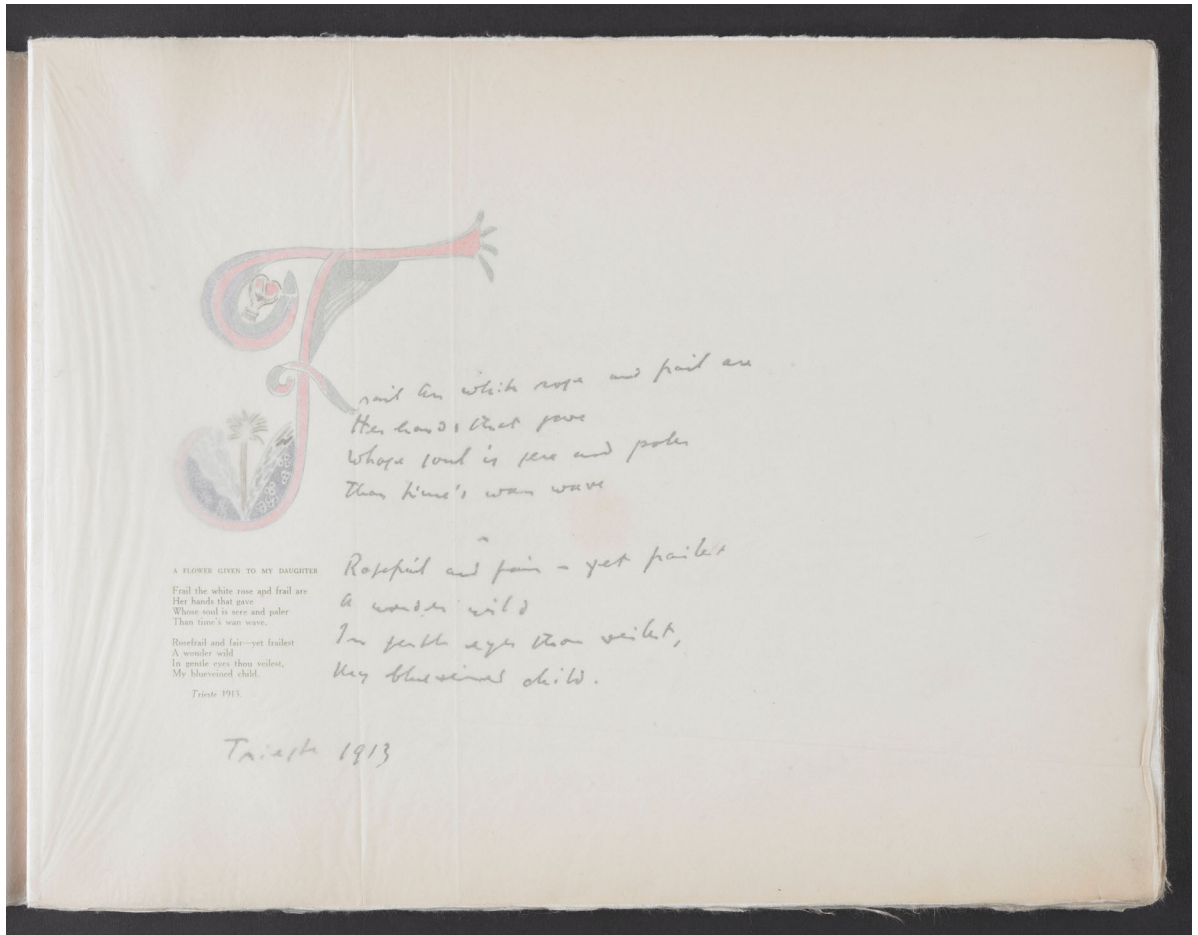 Frail the white rose and frail are
Her hands that gave
Whose soul is sere and paler
Than time's wan wave
Rosefrail and fair – yet frailest
A wonder wild
In gentle eyes thou veilest,
My blueveined child.
Trieste 1913
A FLOWER GIVEN TO MY DAUGHTER
Frail the white rose and frail are
Her hands that gave
Whose soul is sere and paler
Than time's wan wave.
Rosefrail and fair—yet frailest
A wonder wild
In gentle eyes thou veilest,
My blueveined child.
Trieste 1913.